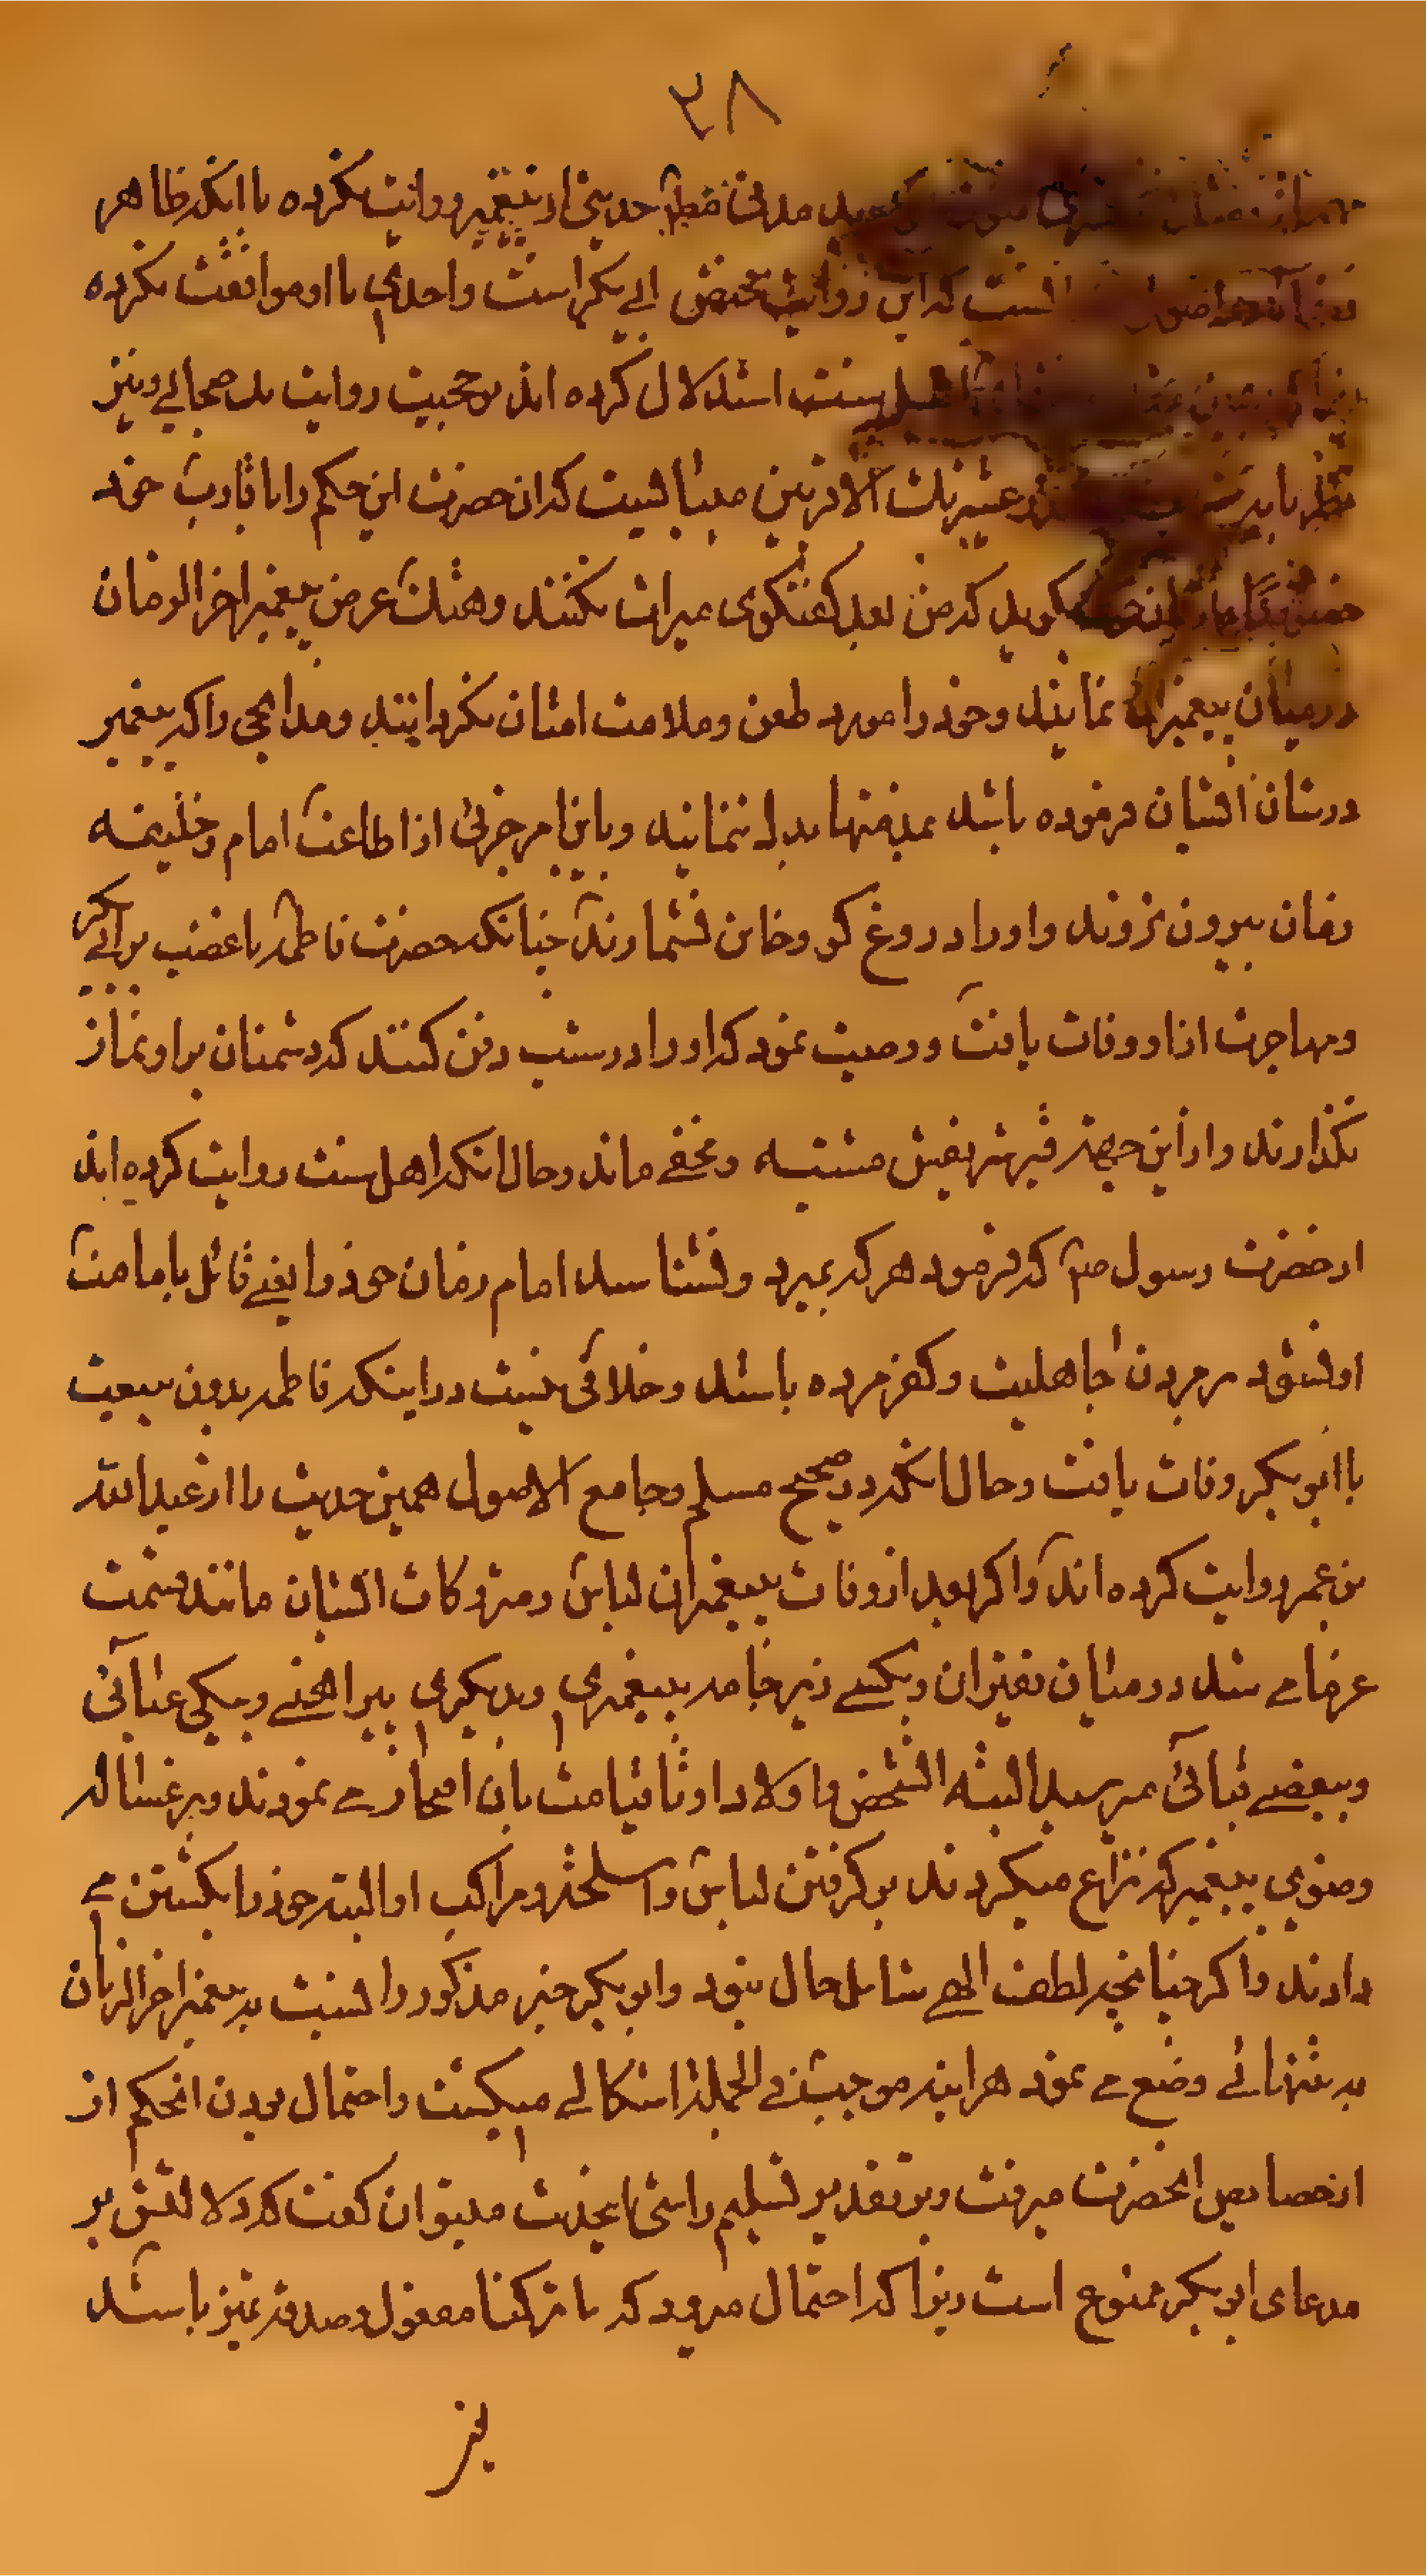 ۳۸
حدیثی از پیغمبر روایت نکرده با آنکه ظاهر
که این روایت مختص ابی بکر است واحدی با او موافقت نکرده
سنت استدلال کرده اند بر حجیت روایت یک صحابی ونیز
عشیرتک الاقربین میبایست که آن حضرت این حکم را با قارب خود
بکوید که من بعد کفتکوی میراث نکنند وهتک عرض پیغمبر اخر الزمان
درمیان پیغمبران ننمایند وخود را مورد طعن وملامت امتان نکردانند ومدایحی را که پیغمبر
درشان ایشان فرموده باشد بمذمتها بدل ننمایند وباین امر جزئی از اطاعت امام وخلیفه
زمان بیرون نروند واورا دروغ کو وخاین نشمارند چنانکه حضرت فاطمه با غضب بر ابی بکر
ومهاجرت از او وفات یافت ووصیت نمود که اورا درشب دفن کنند که دشمنان بر او نماز
نکذارند واز این جهة قبر شریفش مشتبه ومخفی ماند وحال انکه اهل سنت روایت کرده اند
از حضرت رسول ص که فرمود هر که بمیرد ونشناسد امام زمان خود را یعنی قائل بامامت
او نشود بر مردن جاهلیت وکفر مرده باشد وخلافی نیست در اینکه فاطمه بدون بیعت
با ابو بکر وفات یافت وحال انکه در صحیح مسلم وجامع الاصول همین حدیث را از عبد الله
بن عمر روایت کرده اند واکر بعد از وفات پیغمبران لباس ومتروکات ایشان مانند قسمت
غرما می شد درمیان فقیران وبکسی زیر جامه پیغمبری وبدیکری پیراهنی وبیکی عبائی
وببعضی قبائی میرسید البته الشخص واولاد او تا قیامت بان افتخار می نمودند وبر غساله
وضوی پیغمبر که نزاع میکردند بر کرفتن لباس واسلحه ومراکب او البته خود را بکشتن می
دادند واکر چنانچه لطف الهی شامل حال نبود وابو بکر خبر مذکور را نسبت به پیغمبر اخر الزمان
به تنهائی وضع می نمود هر اینه موجب فی الجمله اشکالی میکشت واحتمال بودن انحکم از
از خصایص انحضرت میرفت وبر تقدیر تسلیم راستی اینحدیث میتوان کفت که دلالتش بر
مدعای ابو بکر ممنوع است زیرا که احتمال میرود که ما ترکنا مفعول وصدقه تمیز باشد